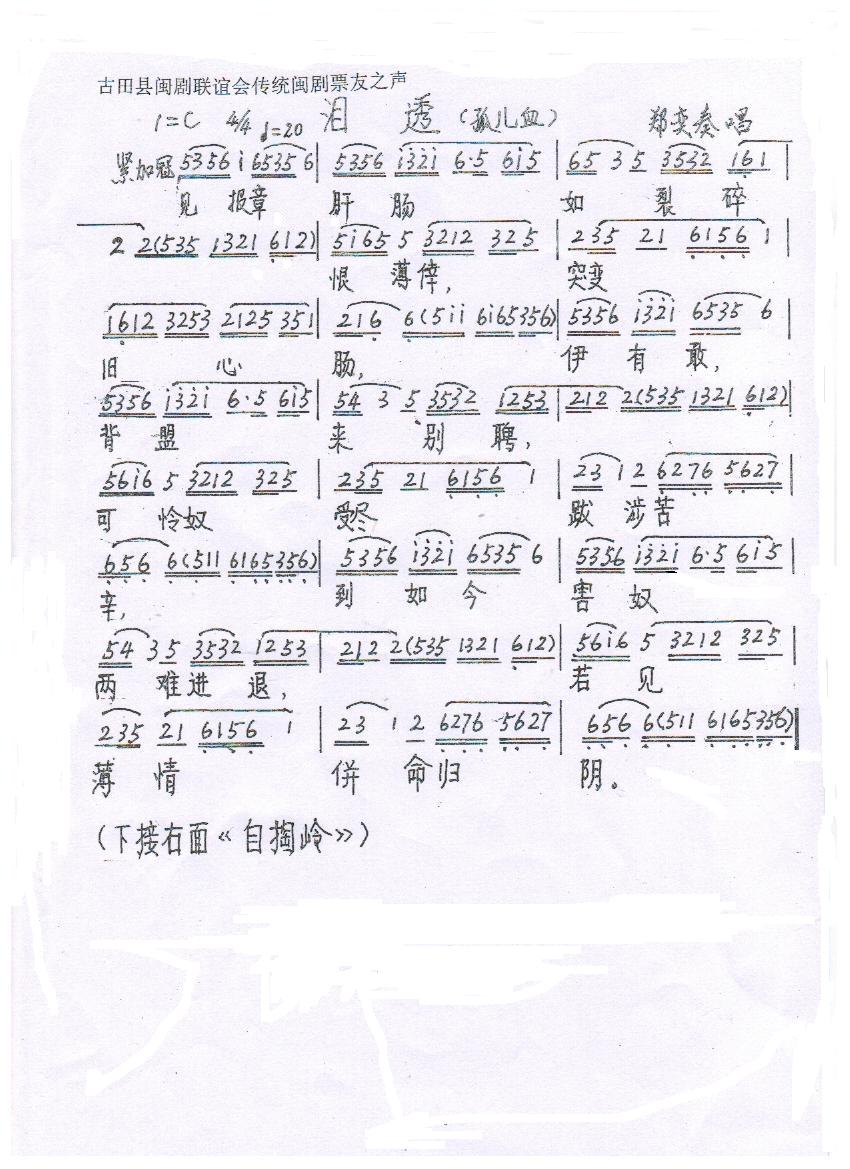 古田县闽剧联谊会传统闽剧票友之声
1=C 4/4 ♩=20 泪 透 (孤儿血) 郑奕奏唱
紧加冠 5356 i 6535 6 | 5356 i̇3̇2̇i̇ 6·5 6i5 | 65 3 5 3532 161 |
见 报章 肝 肠 如 裂 碎
2 2(535 1321 612) | 5i65 5 3212 325 | 235 21 6156 1 |
恨 薄倖, 突变
1612 3253 2125 351 | 216 6(5ii 6i65356) | 5356 i̇3̇2̇i̇ 6535 6 |
旧 心 肠, 伊 有 敢,
5356 i̇3̇2̇i̇ 6·5 6i5 | 54 3 5 3532 1253 | 212 2(535 1321 612) |
背 盟 来 别 聘,
56i6 5 3212 325 | 235 21 6156 1 | 23 1 2 6276 5627 |
可 怜奴 受尽 跋 涉苦
656 6(511 6165356) | 5356 i̇3̇2̇i̇ 6535 6 | 5356 i̇3̇2̇i̇ 6·5 6i5 |
辛, 到 如 今 害 奴
54 35 3532 1253 | 212 2(535 1321 612) | 56i6 5 3212 325 |
两 难进 退, 若 见
235 21 6156 1 | 23 1 2 6276 5627 | 656 6(511 6165356) ‖
薄 情 併 命归 阴。
(下接右面《自掏岭》)